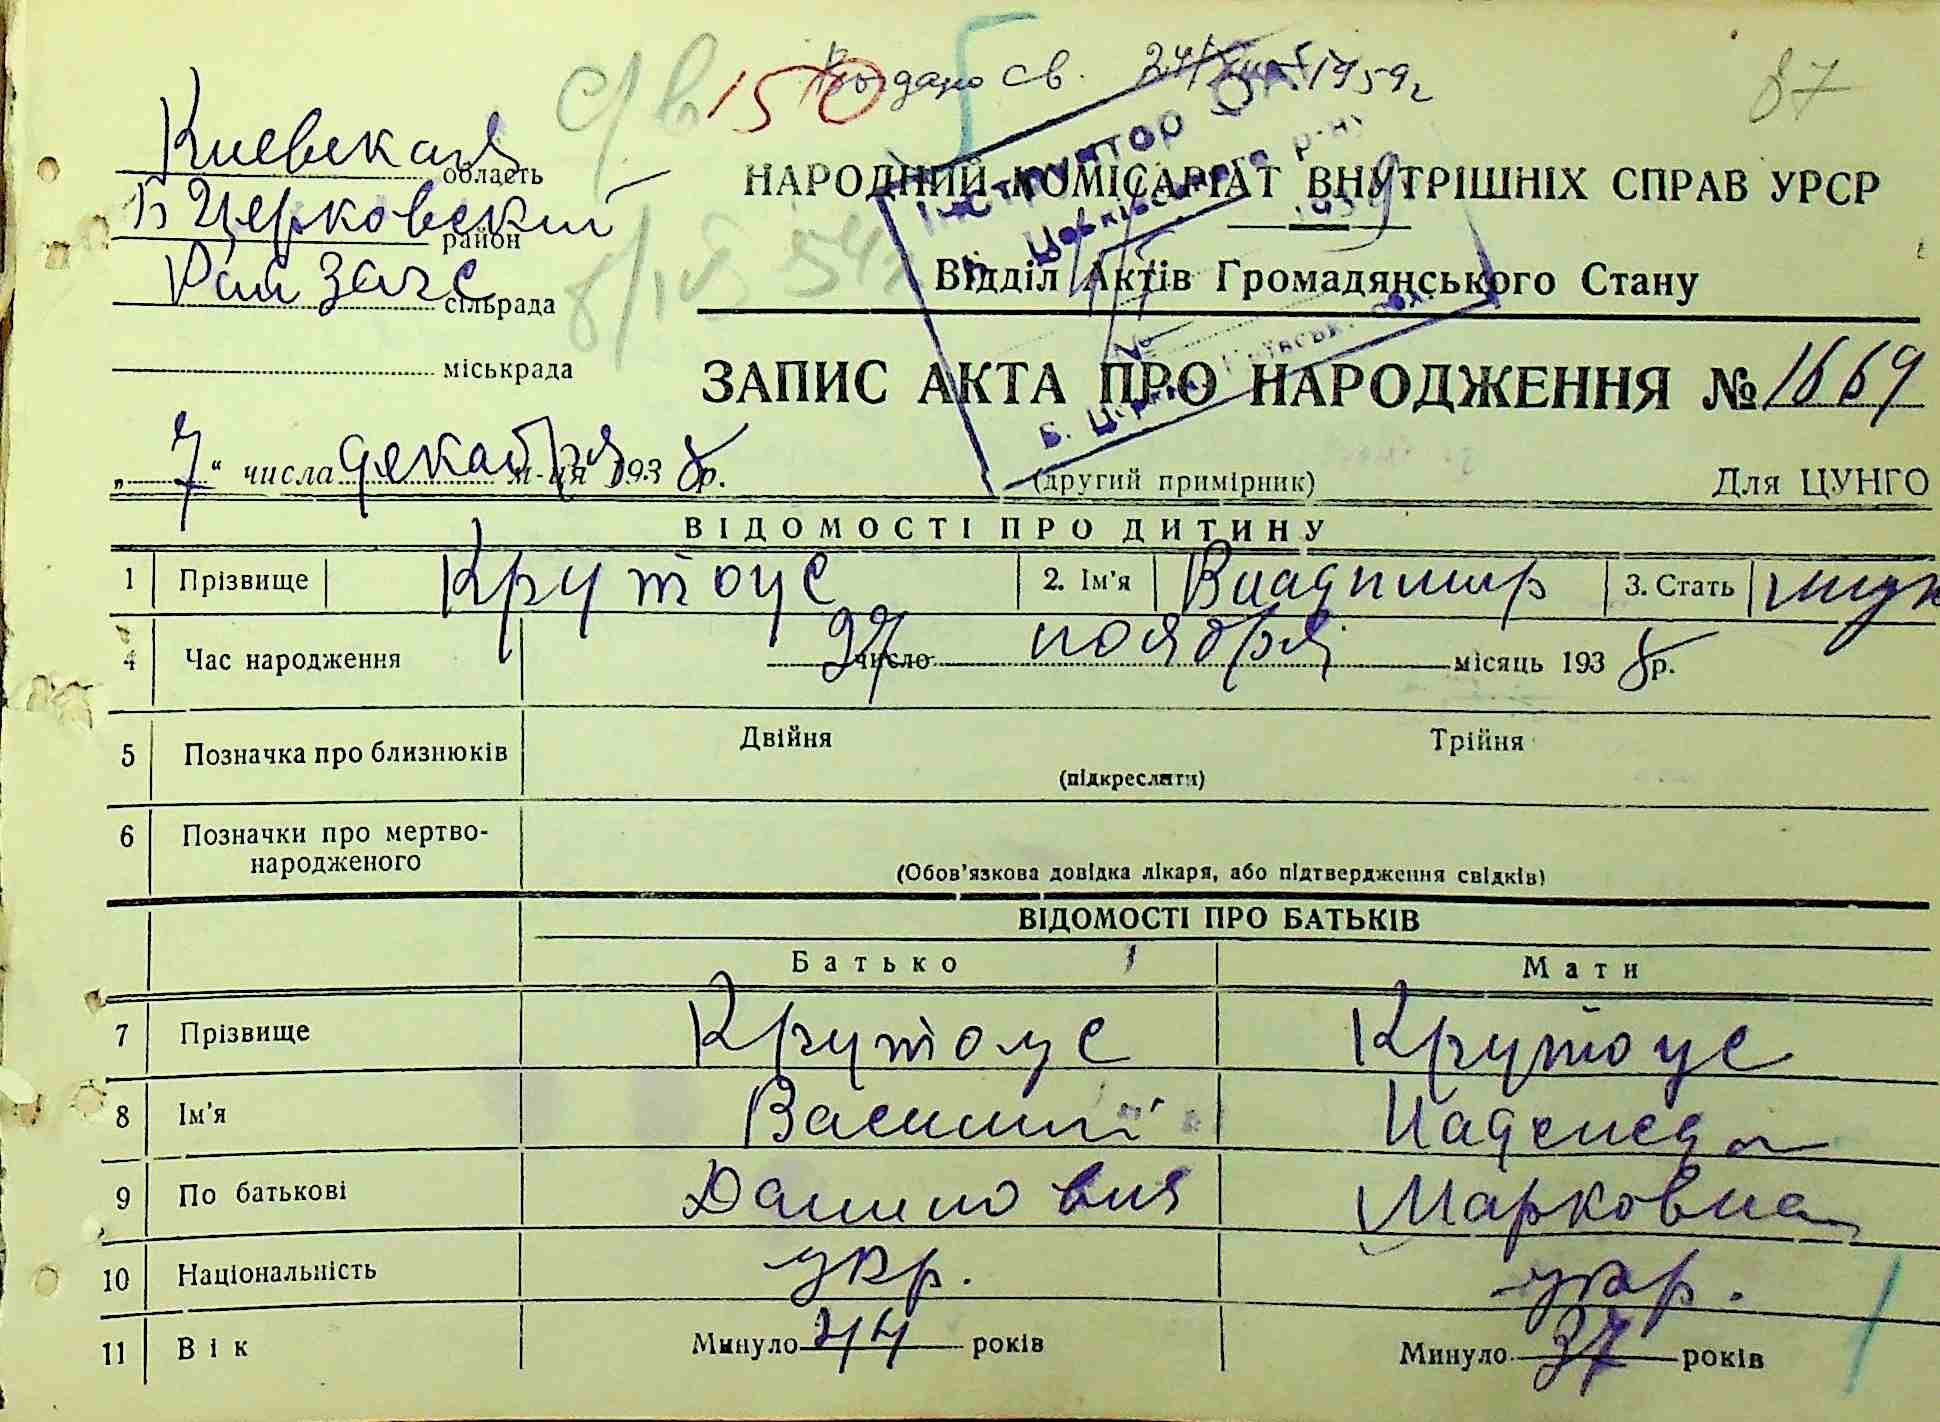 Выдано св. 1959г
150
87
Киевская область
Б Церковский район
Рай загс сільрада
міськрада
НАРОДНИЙ КОМІСАРІАТ ВНУТРІШНІХ СПРАВ УРСР
Відділ Актів Громадянського Стану
ЗАПИС АКТА ПРО НАРОДЖЕННЯ № 1669
„7“ числа декабря м-ця 1938 р.
(другий примірник) Для ЦУНГО
ВІДОМОСТІ ПРО ДИТИНУ
1 Прізвище Крутоус 2. Ім'я Владимир 3. Стать муж
4 Час народження 27 число ноября місяць 1938 р.
5 Позначка про близнюків Двійня Трійня
(підкреслити)
6 Позначки про мертво-
народженого
(Обов'язкова довідка лікаря, або підтвердження свідків)
ВІДОМОСТІ ПРО БАТЬКІВ
Батько Мати
7 Прізвище Крутоус Крутоус
8 Ім'я Василий Надежда
9 По батькові Данилович Марковна
10 Національність укр. укр.
11 Вік Минуло 44 років Минуло 37 років